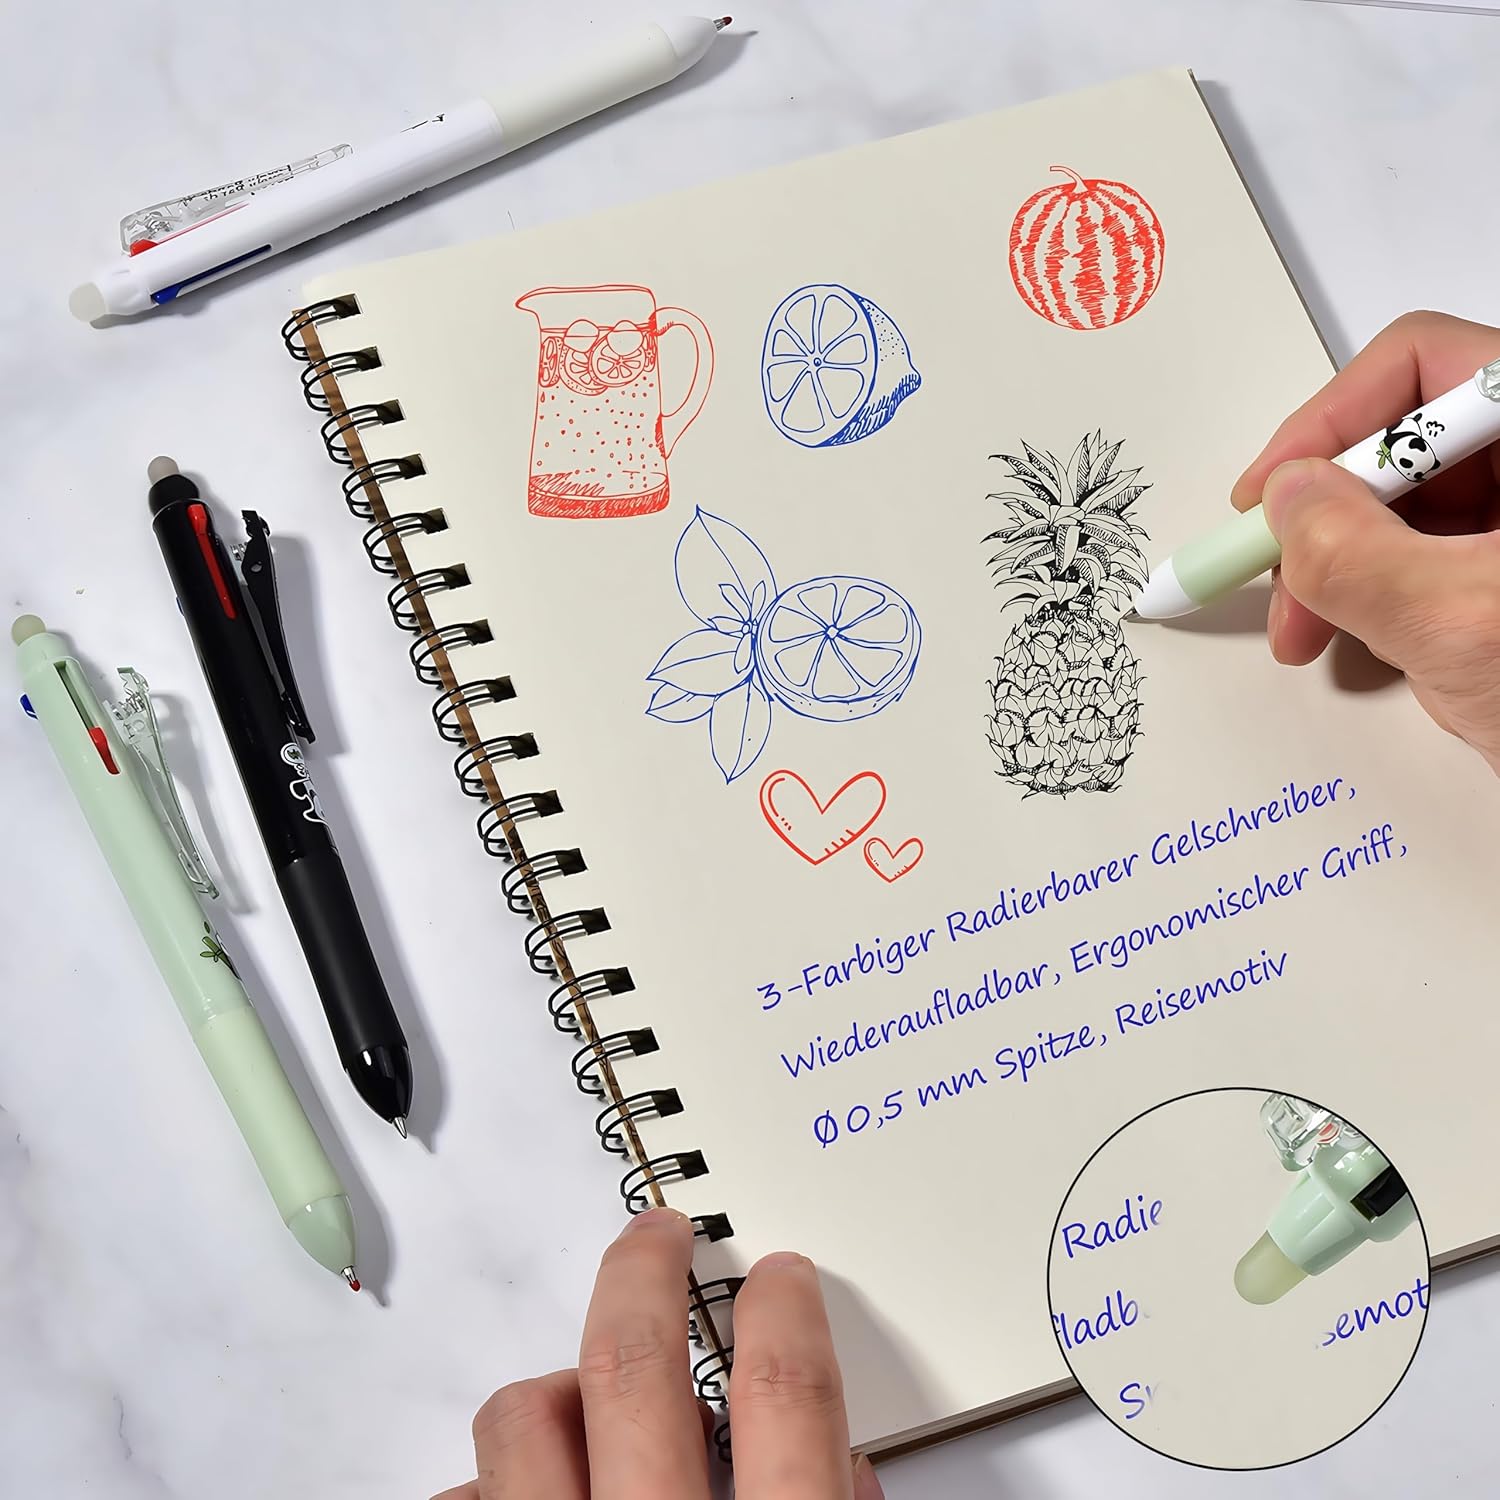 3-Farbiger Radierbarer Gelschreiber,
Wiederaufladbar, Ergonomischer Griff,
Ø0,5 mm Spitze, Reisemotiv
Radie
fladb
semot